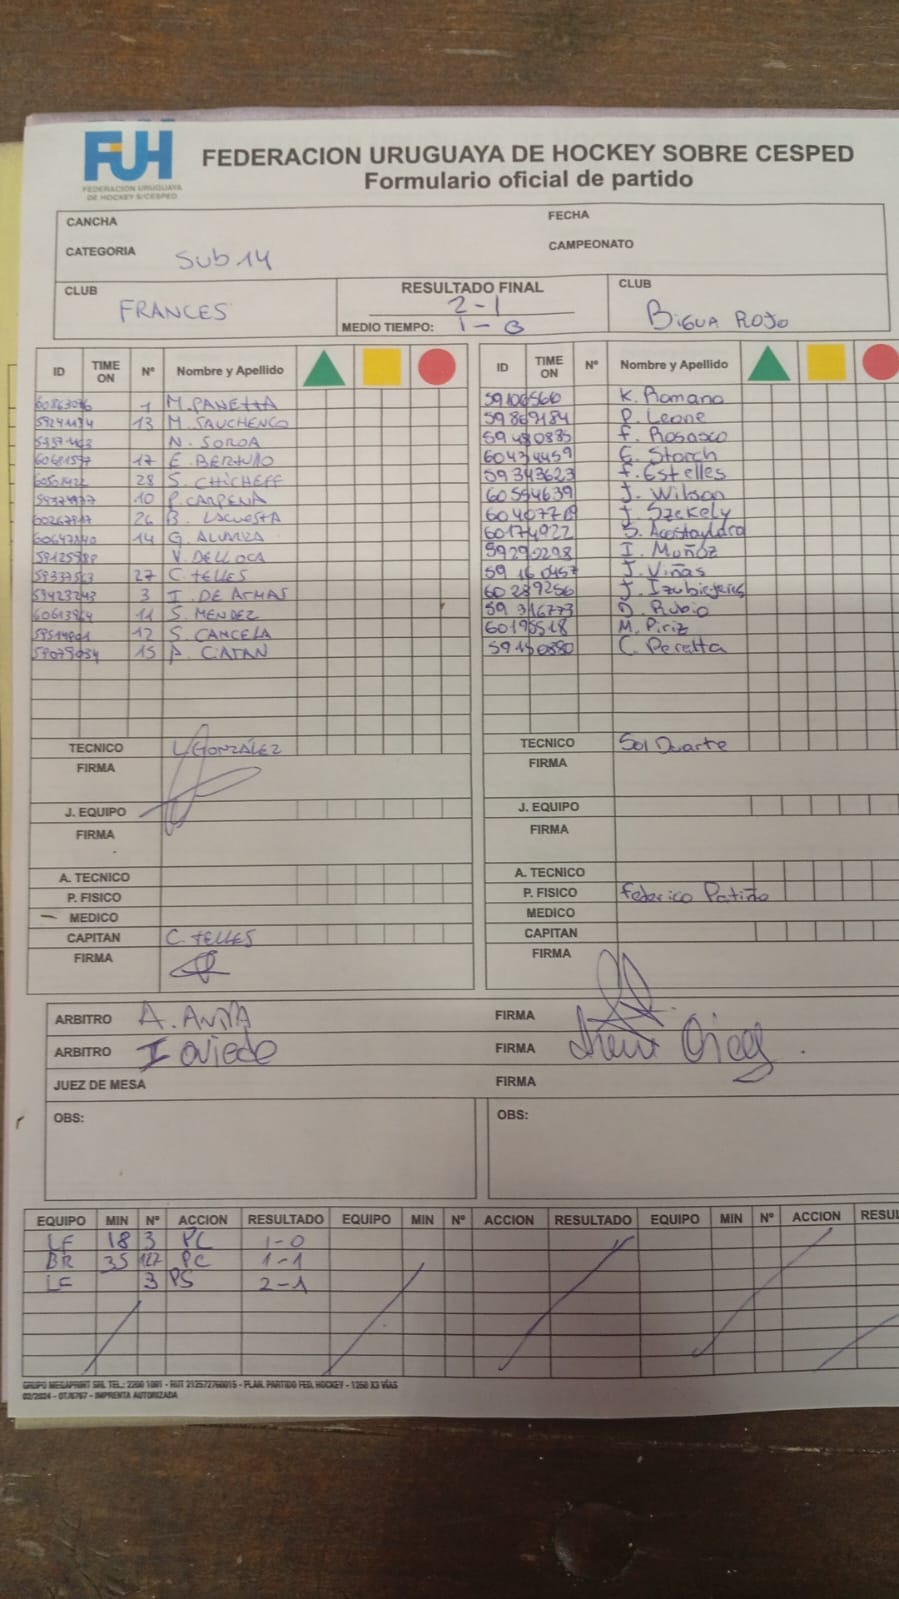 FUH
FEDERACION URUGUAYA
DE HOCKEY S/CESPED
FEDERACION URUGUAYA DE HOCKEY SOBRE CESPED
Formulario oficial de partido
CANCHA
FECHA
CATEGORIA Sub 14
CAMPEONATO
CLUB FRANCES
RESULTADO FINAL
2-1
MEDIO TIEMPO: 1-0
CLUB BIGUA ROJO
ID TIME ON Nº Nombre y Apellido
1 M. PANETTA
13 M. SAUCHENCO
N. SOROA
17 E.
28 S. CHICHEFF
10 P. CARPENA
26 B. LACUESTA
14 G.
V. DELLOCA
27 C. TELLES
3 I. DE ARMAS
11 S. MENDEZ
12 S. CANCELA
15 A. CATAN
TECNICO L GONZÁLEZ
FIRMA
J. EQUIPO
FIRMA
A. TECNICO
P. FISICO
MEDICO
CAPITAN C. TELLES
FIRMA
ID TIME ON Nº Nombre y Apellido
59100566 K. Romano
59869184 P. Leone
59480835 F. Rosasco
60434459 E. Storch
59343623 F. Estelles
60554639 J. Wilson
J. Szekely
60174922 S.
59292298 I. Muñoz
59160457 J. Viñas
60289256 J.
59316773 D. Rubio
60195518 M. Piriz
59150880 C. Peretta
TECNICO Sol Duarte
FIRMA
J. EQUIPO
FIRMA
A. TECNICO
P. FISICO Federico Patiño
MEDICO
CAPITAN
FIRMA
ARBITRO A.
FIRMA
ARBITRO I Oviedo
FIRMA
JUEZ DE MESA
FIRMA
OBS:
OBS:
EQUIPO MIN Nº ACCION RESULTADO EQUIPO MIN Nº ACCION RESULTADO EQUIPO MIN Nº ACCION RESUL
LF 18 3 PC 1-0
BR 35 PC 1-1
LF 3 PS 2-1
GRUPO MEGAPRINT SRL TEL.: 2200 1081 - RUT 212572760015 - PLAN. PARTIDO FED. HOCKEY - 1250 X3 VÍAS
02/2024 - OT/6767 - IMPRENTA AUTORIZADA